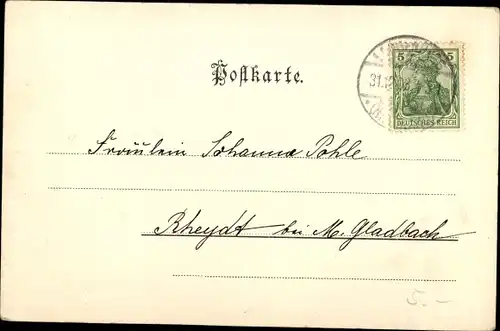 Postkarte.
5 5
DEUTSCHES REICH
31.12
Fräulein Johanna Pohle
Rheydt bei M. Gladbach
5.-